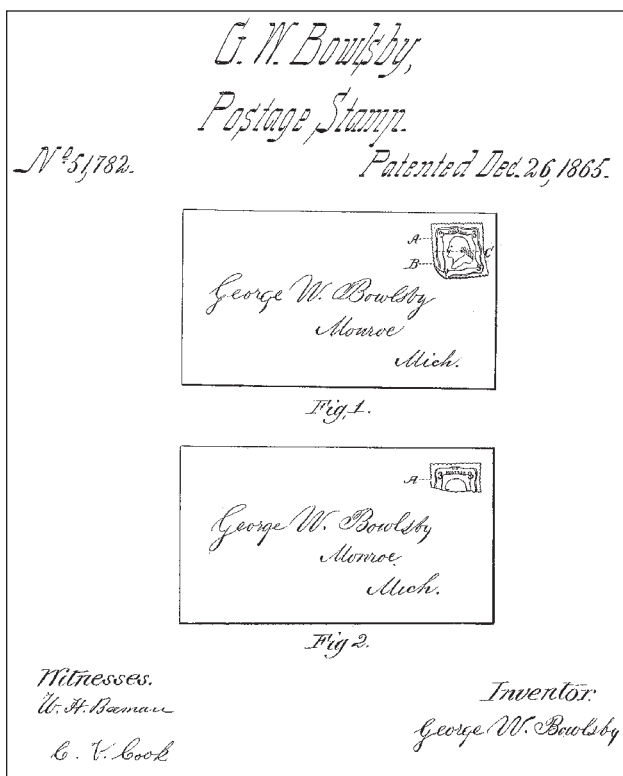 G. W. Bowlsby,
Postage Stamp.
No 51,782.
Patented Dec. 26, 1865.
A
B
C
George W. Bowlsby
Monroe
Mich.
Fig. 1.
A
George W. Bowlsby
Monroe.
Mich.
Fig 2.
Witnesses.
W. H. Beeman
C. V. Cook
Inventor.
George W. Bowlsby